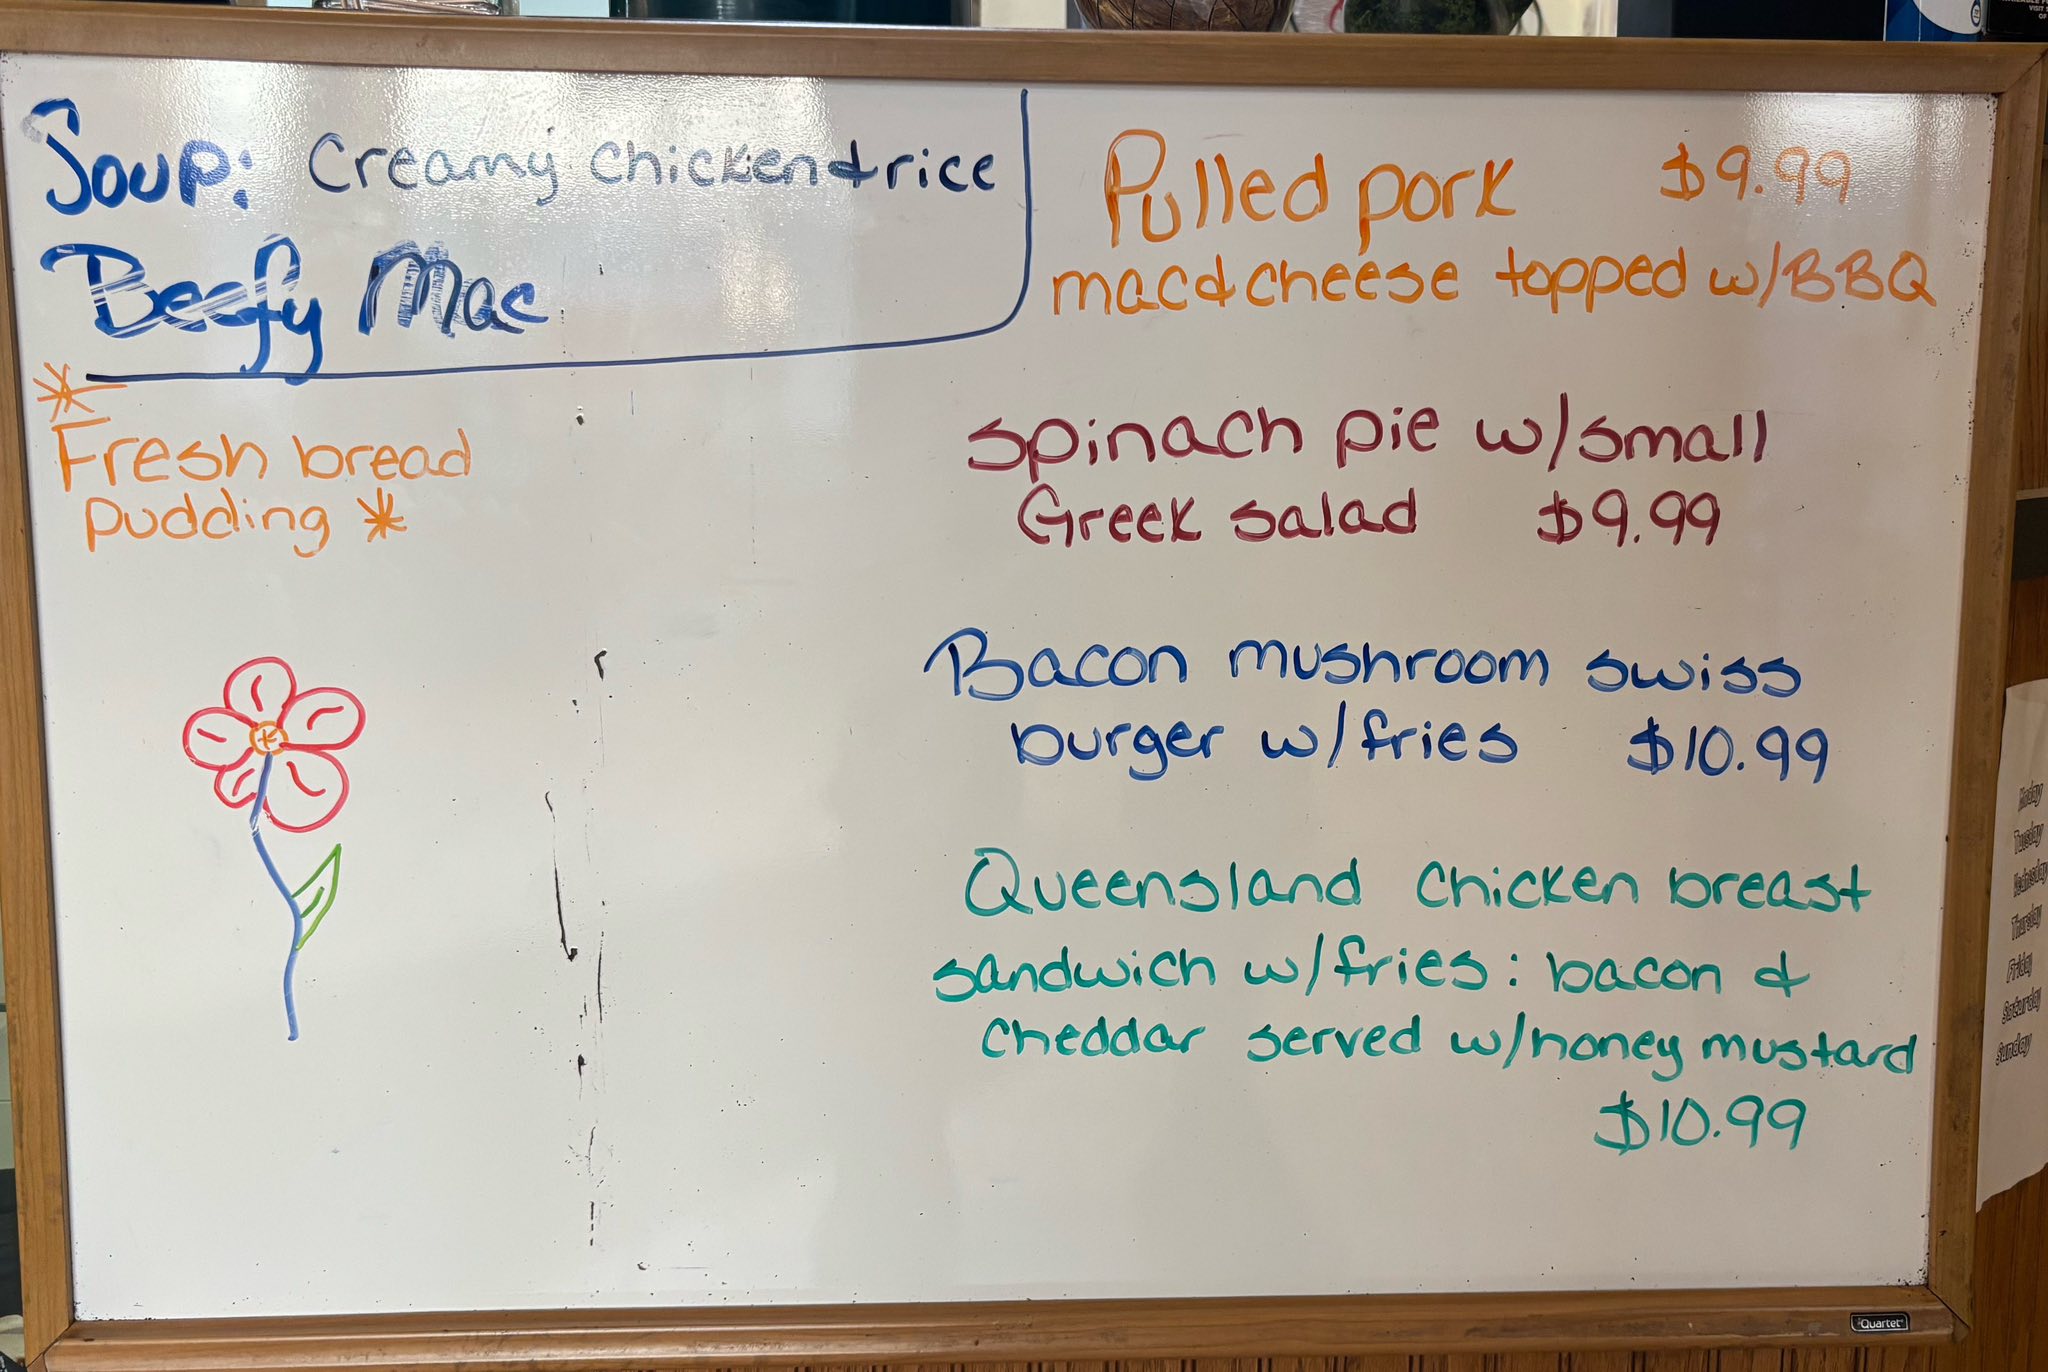 Soup: Creamy chicken & rice
Beefy Mac
* Fresh bread
pudding *
Pulled pork $9.99
mac & cheese topped w/BBQ
spinach pie w/small
Greek salad $9.99
Bacon mushroom swiss
burger w/fries $10.99
Queensland chicken breast
sandwich w/fries: bacon &
cheddar served w/honey mustard
$10.99
Quartet
Monday
Tuesday
Wednesday
Thursday
Friday
Saturday
Sunday